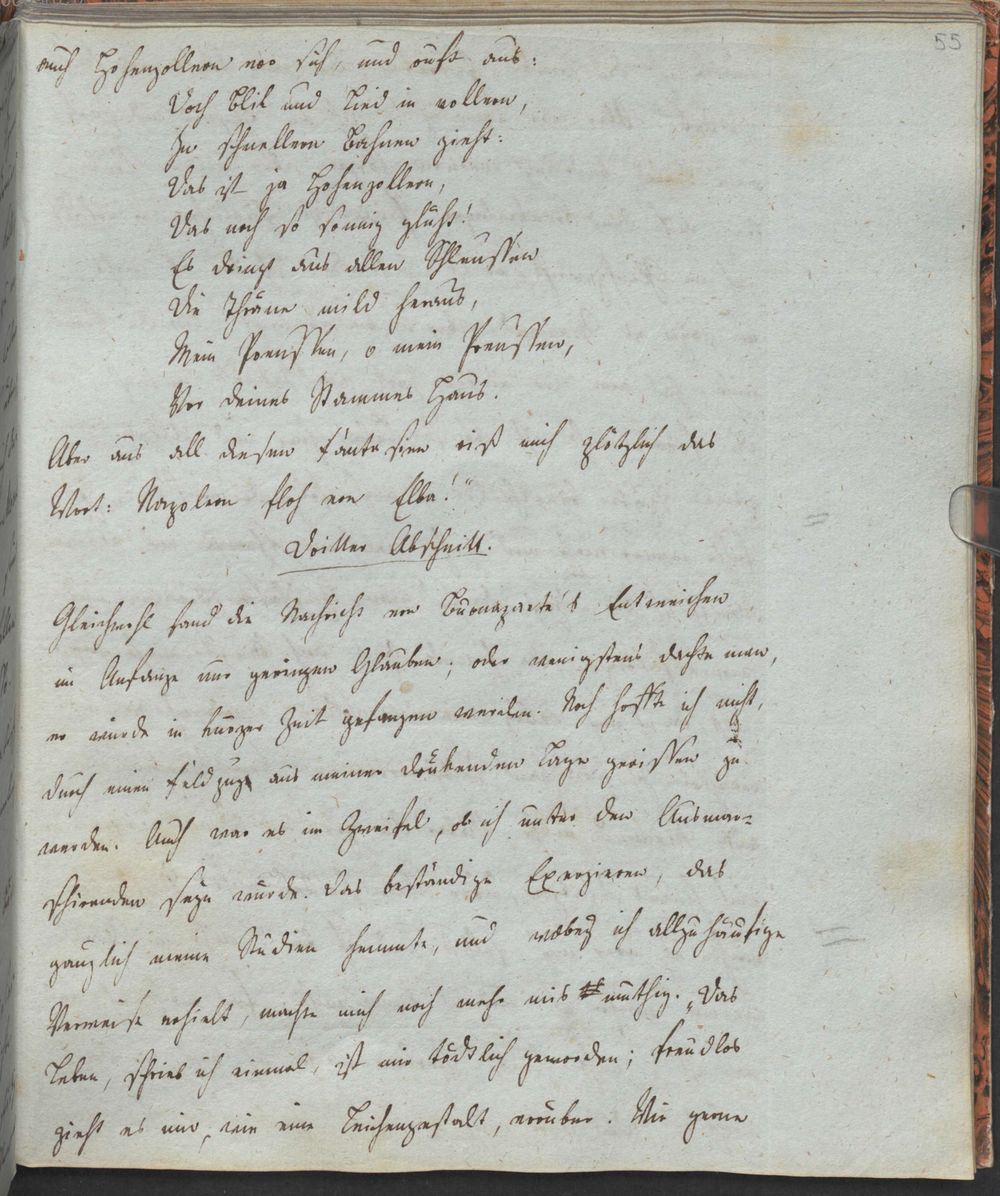 55
auch Hohenzollern vor sich, und ruft aus:
Doch Blik und Lied in vollern,
In schnellern Bahnen zieht:
Das ist ja Hohenzollern,
Das noch so sonnig glüht!
Es dringt aus allen Schleussen
Die Thräne mild heraus,
Mein Preussen, o mein Preussen,
Vor deines Stammes Haus.
Aber aus all diesen Fantasien riß mich plötzlich das
Wort: Napoleon floh von Elba!"
Dritter Abschnitt.
Gleichwohl fand die Nachricht von Buonaparte's Entweichen
im Anfange nur geringen Glauben; oder wenigstens dachte man,
er würde in kurzer Zeit gefangen werden. Noch hoffte ich nicht,
durch einen Feldzug aus meiner drükenden Lage gerissen zu
werden. Auch war es im Zweifel, ob ich unter den Ausmar=
schirenden seyn würde. Das beständige Exerzieren, das
gänzlich meine Studien hemmte, und wobey ich allzuhäufige
Verweise erhielt, machte mich noch mehr mismuthig. „Das
Leben, schrieb ich einmal, ist mir tödtlich geworden; freudlos
zieht es mir, wie eine Leichengestalt, vorüber. Wie gerne